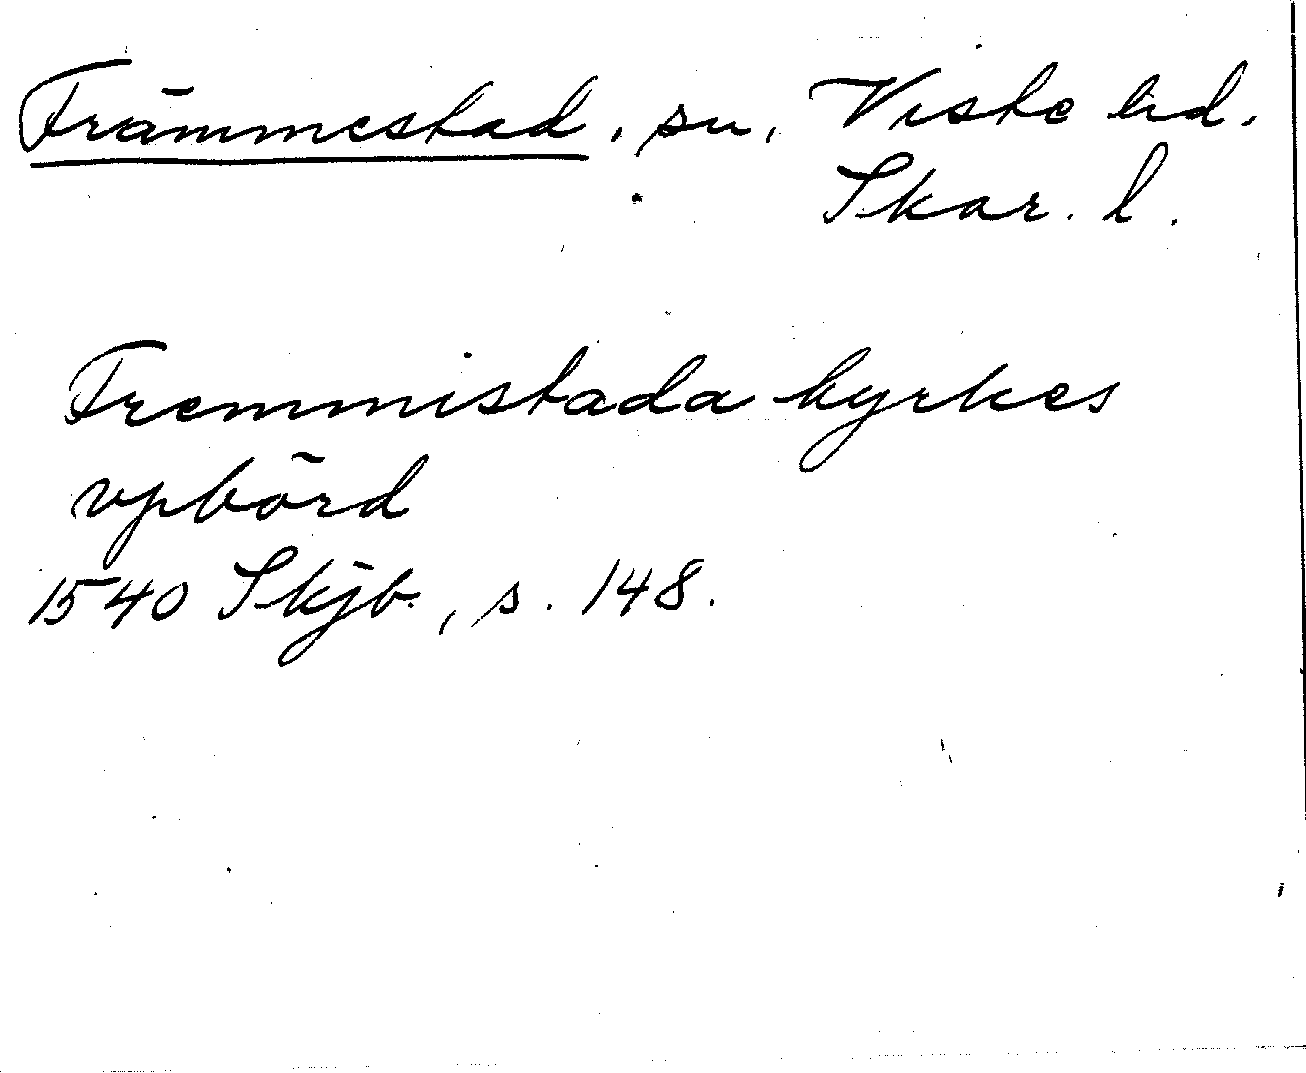 Främmestad, sn, Viste hd.
Skar. l.
Fremmistada kyrkes
vpbörd
1540 Skjb., s. 148.